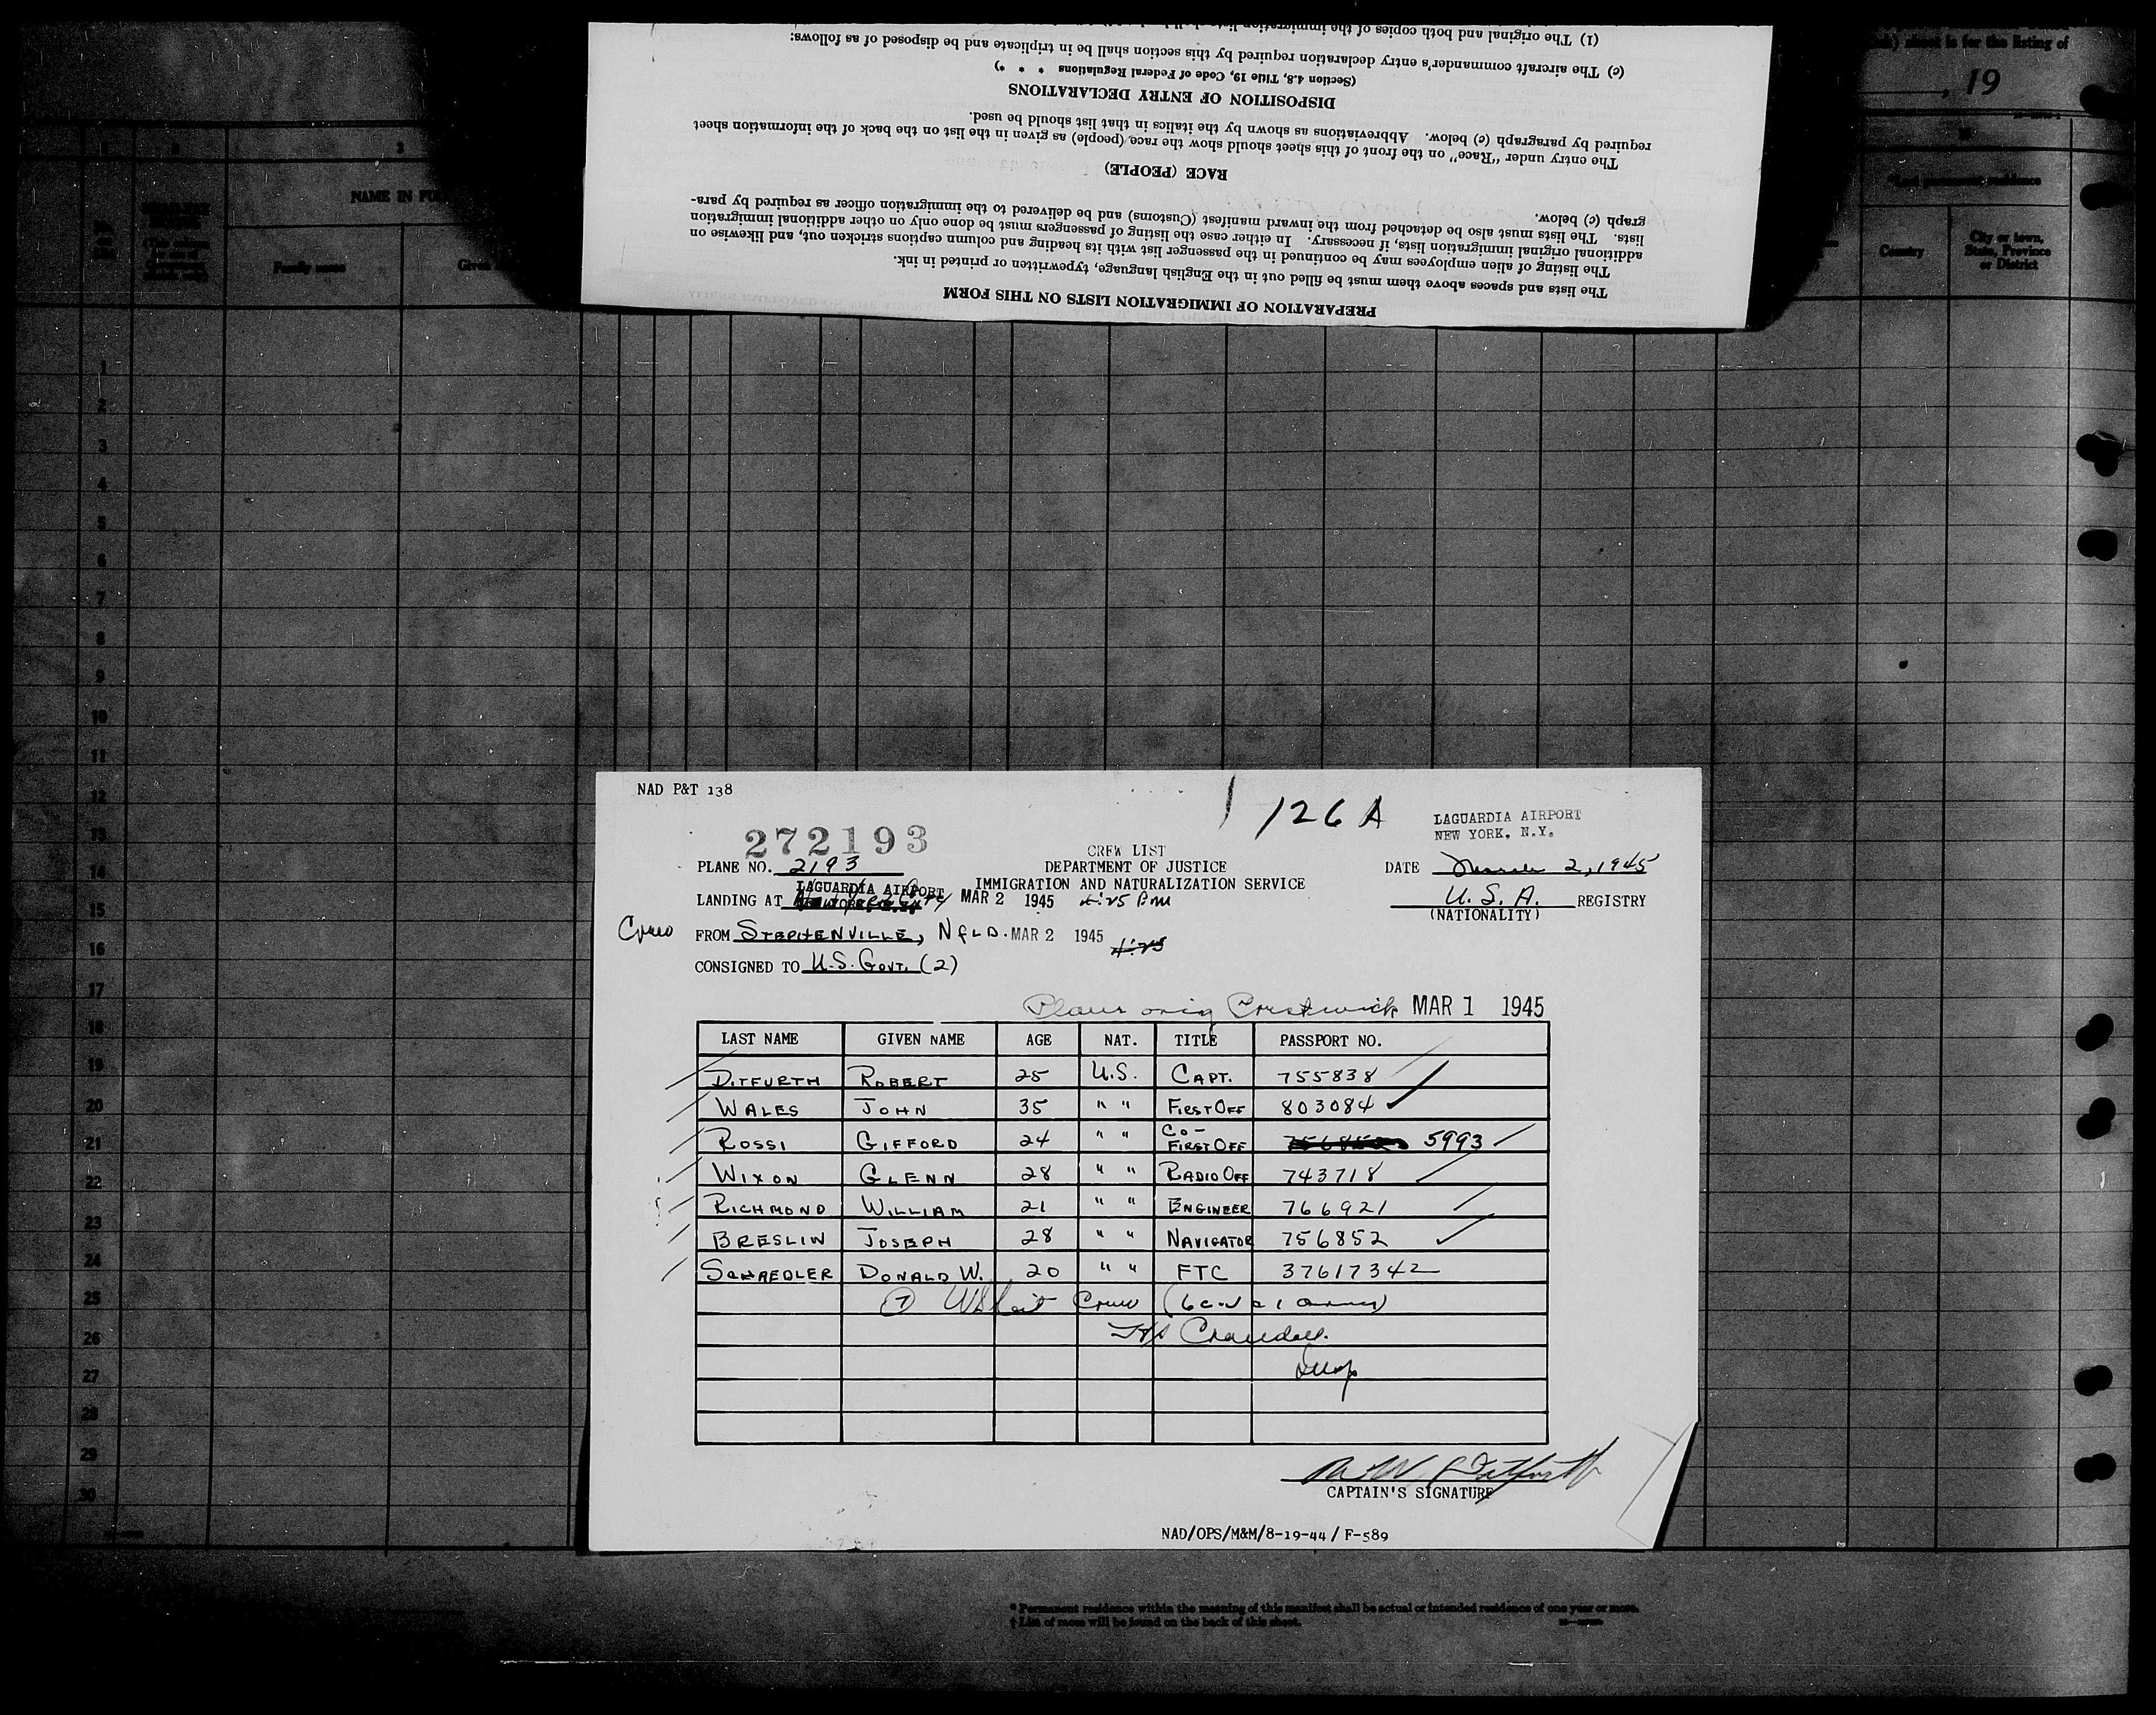 sheet is for the listing of
, 19
(1) The original and both copies of the immigration lists shall be
(c) The aircraft commander's entry declaration required by this section shall be in triplicate and be disposed of as follows:
(Section 4.8, Title 19, Code of Federal Regulations * * *)
DISPOSITION OF ENTRY DECLARATIONS
required by paragraph (c) below. Abbreviations as shown by the italics in that list should be used.
The entry under "Race" on the front of this sheet should show the race (people) as given in the list on the back of the information sheet
RACE (PEOPLE)
graph (c) below.
lists. The lists must also be detached from the inward manifest (Customs) and be delivered to the immigration officer as required by para-
additional original immigration lists, if necessary. In either case the listing of passengers must be done only on other additional immigration
The listing of alien employees may be continued in the passenger list with its heading and column captions stricken out, and likewise on
The lists and spaces above them must be filled out in the English language, typewritten or printed in ink.
PREPARATION OF IMMIGRATION LISTS ON THIS FORM
3
NAME IN FU
Family name
Given
permanent residence
Country
City or town, State, Province or District
1
2
3
4
5
6
7
8
9
10
11
12
13
14
15
16
17
18
19
20
21
22
23
24
25
26
27
28
29
30
NAD P&T 138
126 A
LAGUARDIA AIRPORT
NEW YORK, N.Y.
272193
CREW LIST
PLANE NO. 2193
DEPARTMENT OF JUSTICE
DATE March 2, 1945
LAGUARDIA AIRPORT
IMMIGRATION AND NATURALIZATION SERVICE
LANDING AT MAR 2 1945 4:25 PM
U.S.A. REGISTRY
(NATIONALITY)
Crew FROM STEPHENVILLE, NFLD. MAR 2 1945
CONSIGNED TO U.S. GOVT. (2)
Plane orig Prestwick MAR 1 1945
LAST NAME GIVEN NAME AGE NAT. TITLE PASSPORT NO.
DITFURTH ROBERT 25 U.S. CAPT. 755838
WALES JOHN 35 " " FIRST OFF 803084
ROSSI GIFFORD 24 " " CO-FIRST OFF 5993
WIXON GLENN 28 " " RADIO OFF 743718
RICHMOND WILLIAM 21 " " ENGINEER 766921
BRESLIN JOSEPH 28 " " NAVIGATOR 756852
SCHAEDLER DONALD W. 20 " " FTC 37617342
7 Crew
Crandall
Insp
CAPTAIN'S SIGNATURE
NAD/OPS/M&M/8-19-44/ F-589
* Permanent residence within the meaning of this manifest shall be actual or intended residence of one year or more.
† List of races will be found on the back of this sheet.